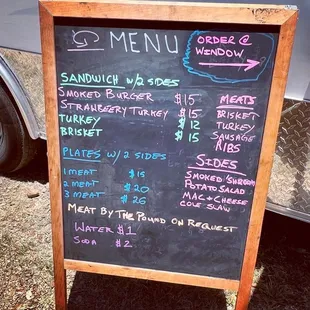 MENU
ORDER @
WINDOW
SANDWICH W/2 SIDES
SMOKED BURGER $15
STRAWBERRY TURKEY $15
TURKEY $12
BRISKET $15
MEATS
BRISKET
TURKEY
SAUSAGE
RIBS
PLATES W/ 2 SIDES
1 MEAT $15
2 MEAT $20
3 MEAT $26
SIDES
SMOKED 'SHROOM
POTATO SALAD
MAC & CHEESE
COLE SLAW
MEAT BY THE POUND ON REQUEST
WATER $1
SODA $2